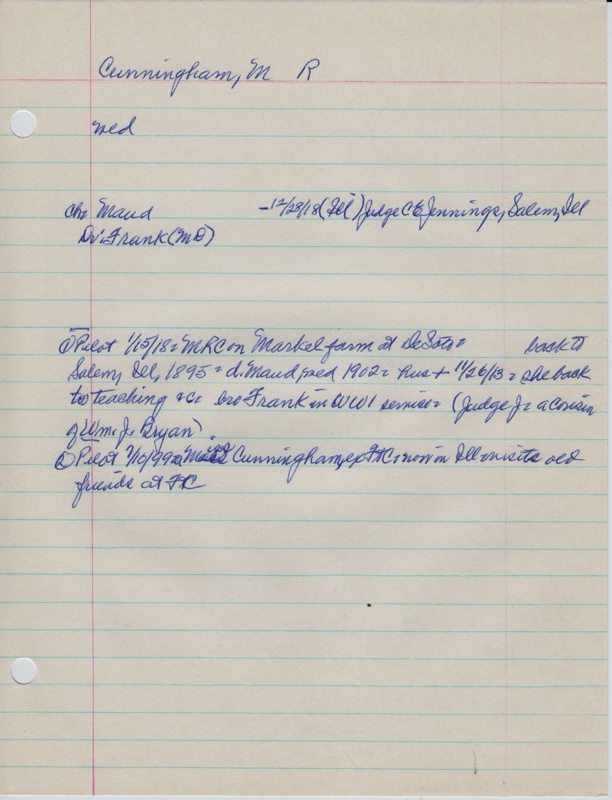 Cunningham, M R
wed
ch: Maud -12/28/18 (Ill) Judge C E Jennings, Salem, Ill
Dr. Frank (MD)
① Pilot 1/15/18= MRC on Markel farm at DeSoto= back to
Salem, Ill, 1895= d. Maud, wed 1902= hus + 11/26/13= she back
to teaching &c bro Frank in WW1 service= (Judge J= a cousin
of Wm. J. Bryan).
② Pilot 1/10/99= Cunningham, ex FtC now in Ill visits old
friends at FtC